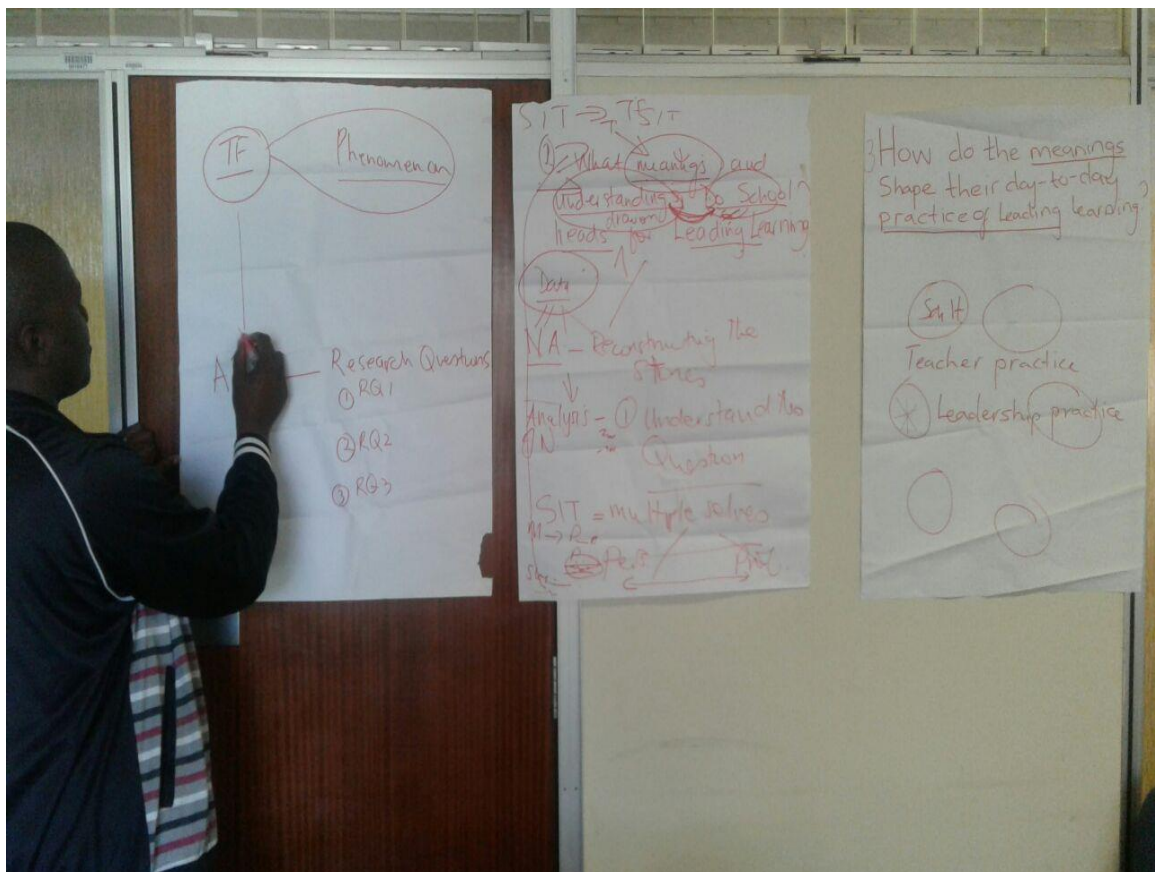 TF Phenomenon
A
Research Questions
① RQ1
② RQ2
③ RQ3
SIT → TF
T SIT
① What meanings and
Understandings do School
drawn
heads for Leading Learning?
Data
NA - Reconstructing the
stories
Analysis - ① Understand the
N
Question
SIT = multiple selves
M → Re
Pers Prof.
3 How do the meanings
Shape their day-to-day
practice of Leading Learning?
Teacher practice
Leadership practice